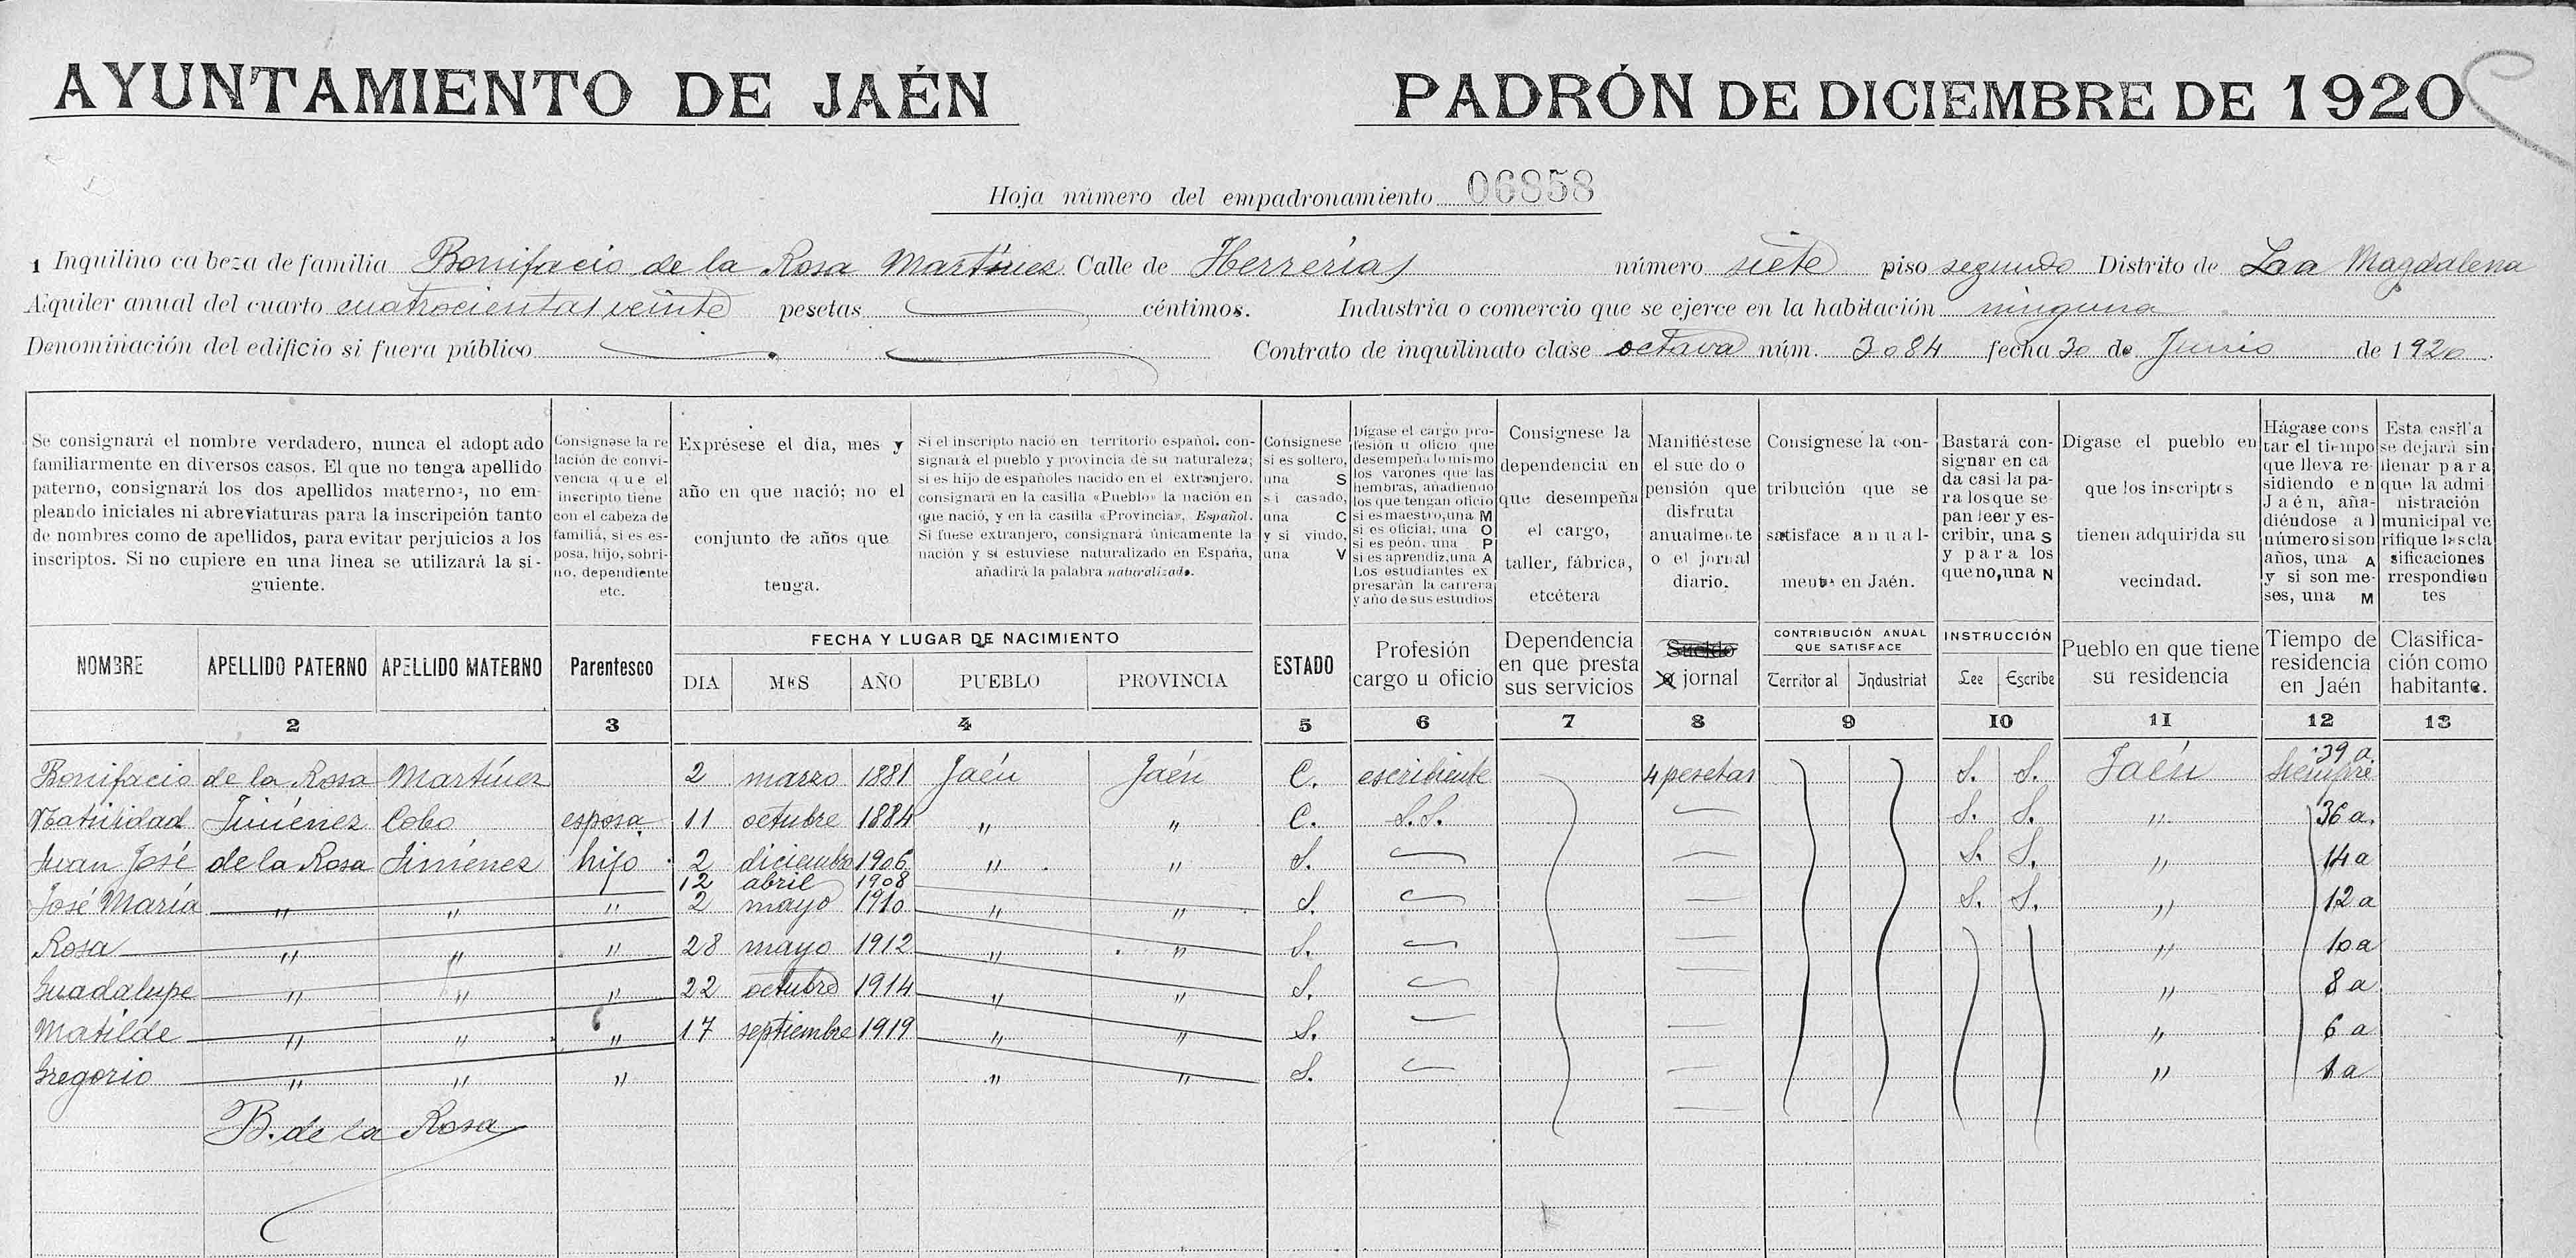 AYUNTAMIENTO DE JAÉN PADRÓN DE DICIEMBRE DE 1920
Hoja número del empadronamiento 06858
1 Inquilino cabeza de familia Bonifacio de la Rosa Martínez Calle de Herrerías número siete piso segundo Distrito de La a Magdalena
Alquiler anual del cuarto cuatrocientas veinte pesetas céntimos. Industria o comercio que se ejerce en la habitación ninguna
Denominación del edificio si fuera público Contrato de inquilinato clase octava núm. 3084 fecha 30 de Junio de 1920.
Se consignará el nombre verdadero, nunca el adoptado
familiarmente en diversos casos. El que no tenga apellido
paterno, consignará los dos apellidos maternos, no em-
pleando iniciales ni abreviaturas para la inscripción tanto
de nombres como de apellidos, para evitar perjuicios a los
inscriptos. Si no cupiere en una linea se utilizará la si-
guiente.
Consígnase la re
lación de convi-
vencia que el
inscripto tiene
con el cabeza de
familia, si es es-
posa, hijo, sobri-
no, dependiente
etc.
Exprésese el dia, mes y
año en que nació; no el
conjunto de años que
tenga.
Si el inscripto nació en territorio español, con-
signará el pueblo y provincia de su naturaleza;
si es hijo de españoles nacido en el extranjero,
consignará en la casilla «Pueblo» la nación en
que nació, y en la casilla «Provincia», Español.
Si fuese extranjero, consignará únicamente la
nación y si estuviese naturalizado en España,
añadirá la palabra naturalizado.
Consígnese
si es soltero,
una S
si casado,
una C
y si viudo,
una V
Dígase el cargo pro-
fesión u oficio que
desempeña lo mismo
los varones que las
hembras, añadiendo
los que tengan oficio
si es maestro, una M
si es oficial, una O
si es peón, una P
si es aprendiz, una A
Los estudiantes ex
presarán la carrera
y año de sus estudios
Consígnese la
dependencia en
que desempeña
el cargo,
taller, fábrica,
etcétera
Manifiéstese
el sueldo o
pensión que
disfruta
anualmente
o el jornal
diario.
Consignese la con-
tribución que se
satisface anual-
mente en Jaén.
Bastará con-
signar en ca
da casi la pa-
ra los que se-
pan leer y es-
cribir, una S
y para los
que no, una N
Dígase el pueblo en
que los inscriptos
tienen adquirida su
vecindad.
Hágase cons
tar el tiempo
que lleva re-
sidiendo en
Jaén, aña-
diéndose al
número si son
años, una A
y si son me-
ses, una M
Esta casilla
se dejará sin
llenar para
que la admi
nistración
municipal ve
rifique las cla
sificaciones
rrespondien
tes
NOMBRE APELLIDO PATERNO APELLIDO MATERNO Parentesco
FECHA Y LUGAR DE NACIMIENTO
DIA MES AÑO PUEBLO PROVINCIA
ESTADO
Profesión
cargo u oficio
Dependencia
en que presta
sus servicios
Sueldo
o jornal
CONTRIBUCIÓN ANUAL
QUE SATISFACE
Territorial Industrial
INSTRUCCIÓN
Lee Escribe
Pueblo en que tiene
su residencia
Tiempo de
residencia
en Jaén
Clasifica-
ción como
habitante.
2 3 4 5 6 7 8 9 10 11 12 13
Bonifacio de la Rosa Martínez 2 marzo 1881 Jaén Jaén C. escribiente 4 pesetas S. S. Jaén 39 a. Siempre
Natividad Jiménez Cobo esposa 11 octubre 1884 " " C. S.S. S. S. " 36 a.
Juan José de la Rosa Jiménez hijo 2 diciembre 1906 " " S. S. S. " 14 a
12 abril 1908
José María " " " 2 mayo 1910 " " S. S. S. " 12 a
Rosa " " " 28 mayo 1912 " " S. " 10 a
Guadalupe " " " 22 octubre 1914 " " S. " 8 a
Matilde " " " 17 septiembre 1919 " " S. " 6 a
Gregorio " " " " " S. " 1 a
B. de la Rosa